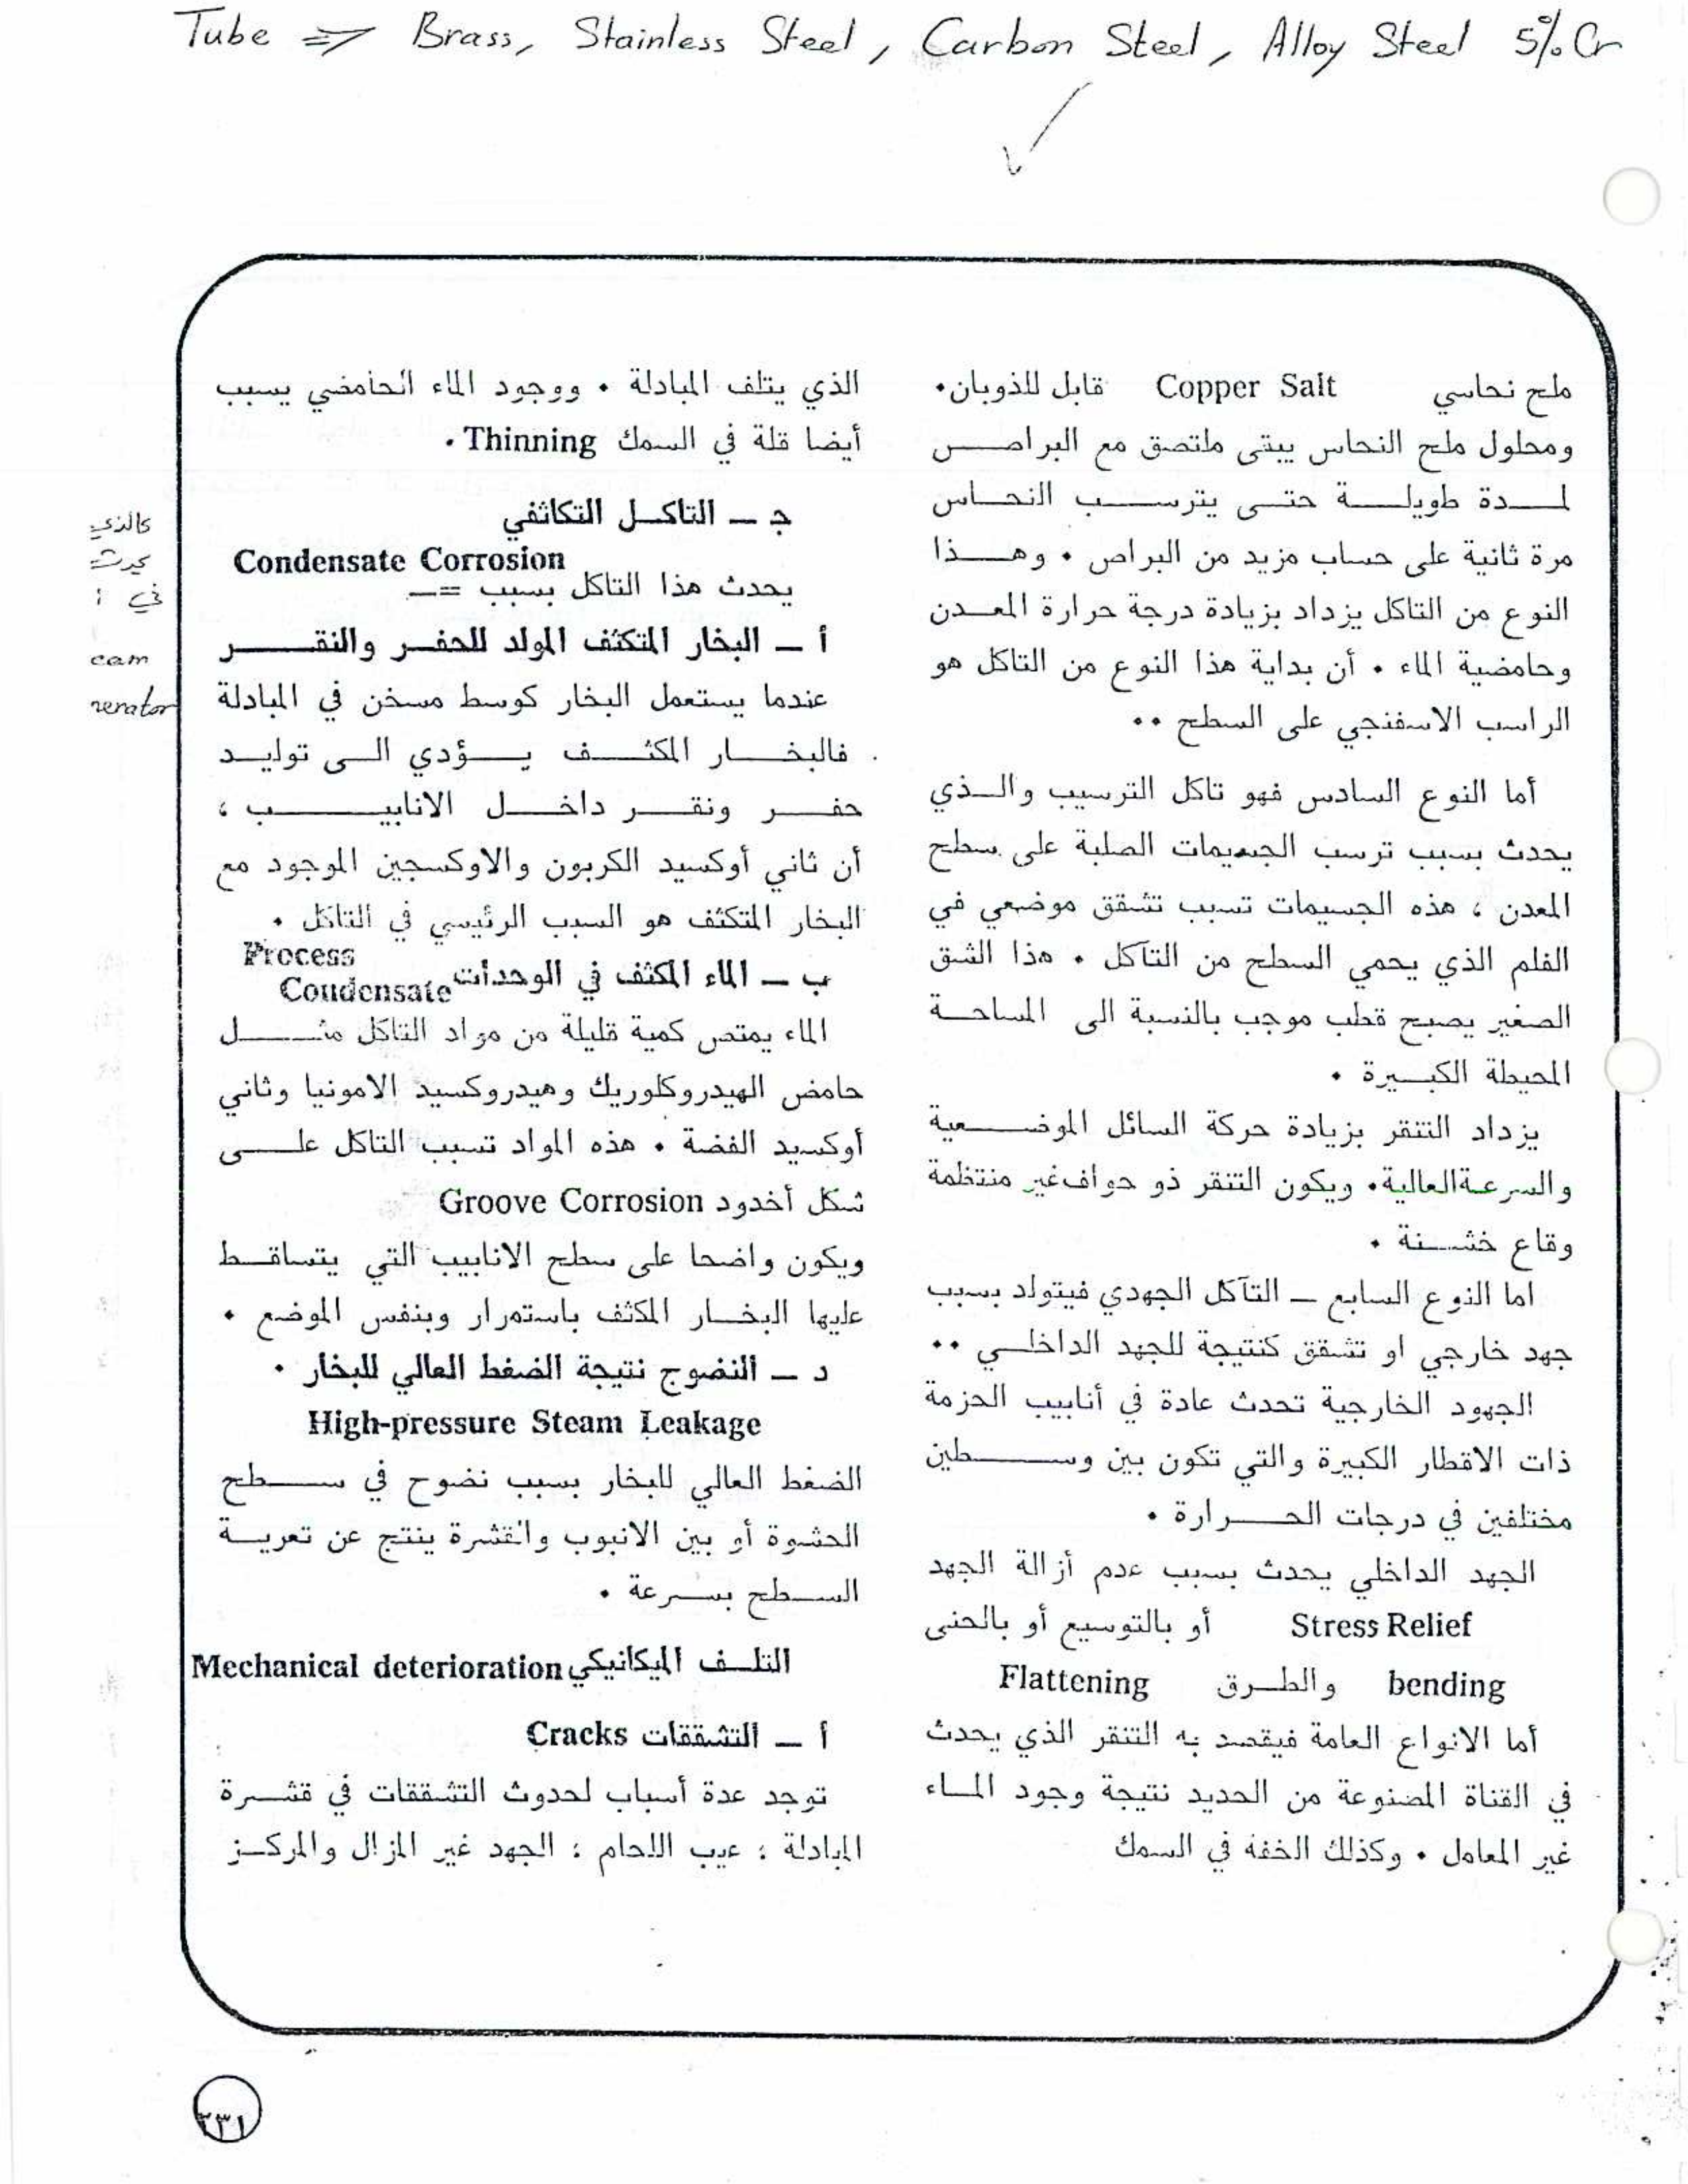 Tube => Brass, Stainless Steel, Carbon Steel, Alloy Steel 5% Cr
ملح نحاسي Copper Salt قابل للذوبان.
ومحلول ملح النحاس يبقى ملتصق مع البراص
لمدة طويلة حتى يترسب النحاس
مرة ثانية على حساب مزيد من البراص . وهذا
النوع من التاكل يزداد بزيادة درجة حرارة المعدن
وحامضية الماء . أن بداية هذا النوع من التاكل هو
الراسب الاسفنجي على السطح ..
أما النوع السادس فهو تاكل الترسيب والذي
يحدث بسبب ترسب الجسيمات الصلبة على سطح
المعدن ، هذه الجسيمات تسبب تشقق موضعي في
الفلم الذي يحمي السطح من التآكل . هذا الشق
الصغير يصبح قطب موجب بالنسبة الى المساحة
المحيطة الكبيرة .
يزداد التنقر بزيادة حركة السائل الموضعية
والسرعة العالية. ويكون التنقر ذو حواف غير منتظمة
وقاع خشنة .
اما النوع السابع — التآكل الجهدي فيتولد بسبب
جهد خارجي او تشقق كنتيجة للجهد الداخلي ..
الجهود الخارجية تحدث عادة في أنابيب الحزمة
ذات الاقطار الكبيرة والتي تكون بين وسطين
مختلفين في درجات الحرارة .
الجهد الداخلي يحدث بسبب عدم أزالة الجهد
Stress Relief أو بالتوسيع أو بالحنى
bending والطرق Flattening
أما الانواع العامة فيقصد به التنقر الذي يحدث
في القناة المصنوعة من الحديد نتيجة وجود الماء
غير المعامل . وكذلك الخفة في السمك
الذي يتلف المبادلة . ووجود الماء الحامضي يسبب
أيضا قلة في السمك Thinning .
ج — التاكل التكاثفي
Condensate Corrosion
يحدث هذا التاكل بسبب =—
أ — البخار المتكثف المولد للحفر والنقر
عندما يستعمل البخار كوسط مسخن في المبادلة
فالبخار المكثف يؤدي الى توليد
حفر ونقر داخل الانابيب ،
أن ثاني أوكسيد الكربون والاوكسجين الموجود مع
البخار المتكثف هو السبب الرئيسي في التاكل .
ب — الماء المكثف في الوحدات Process
Condensate
الماء يمتص كمية قليلة من مواد التاكل مثل
حامض الهيدروكلوريك وهيدروكسيد الامونيا وثاني
أوكسيد الفضة . هذه المواد تسبب التاكل على
شكل أخدود Groove Corrosion
ويكون واضحا على سطح الانابيب التي يتساقط
عليها البخار المكثف باستمرار وبنفس الموضع .
د — النضوج نتيجة الضغط العالي للبخار .
High-pressure Steam Leakage
الضغط العالي للبخار بسبب نضوح في سطح
الحشوة أو بين الانبوب والقشرة ينتج عن تعرية
السطح بسرعة .
التلف الميكانيكي Mechanical deterioration
أ — التشققات Cracks
توجد عدة أسباب لحدوث التشققات في قشرة
المبادلة : عيب اللحام : الجهد غير المزال والمركز
كالذي
يحدث
في :
eam
nerator
٣٣١